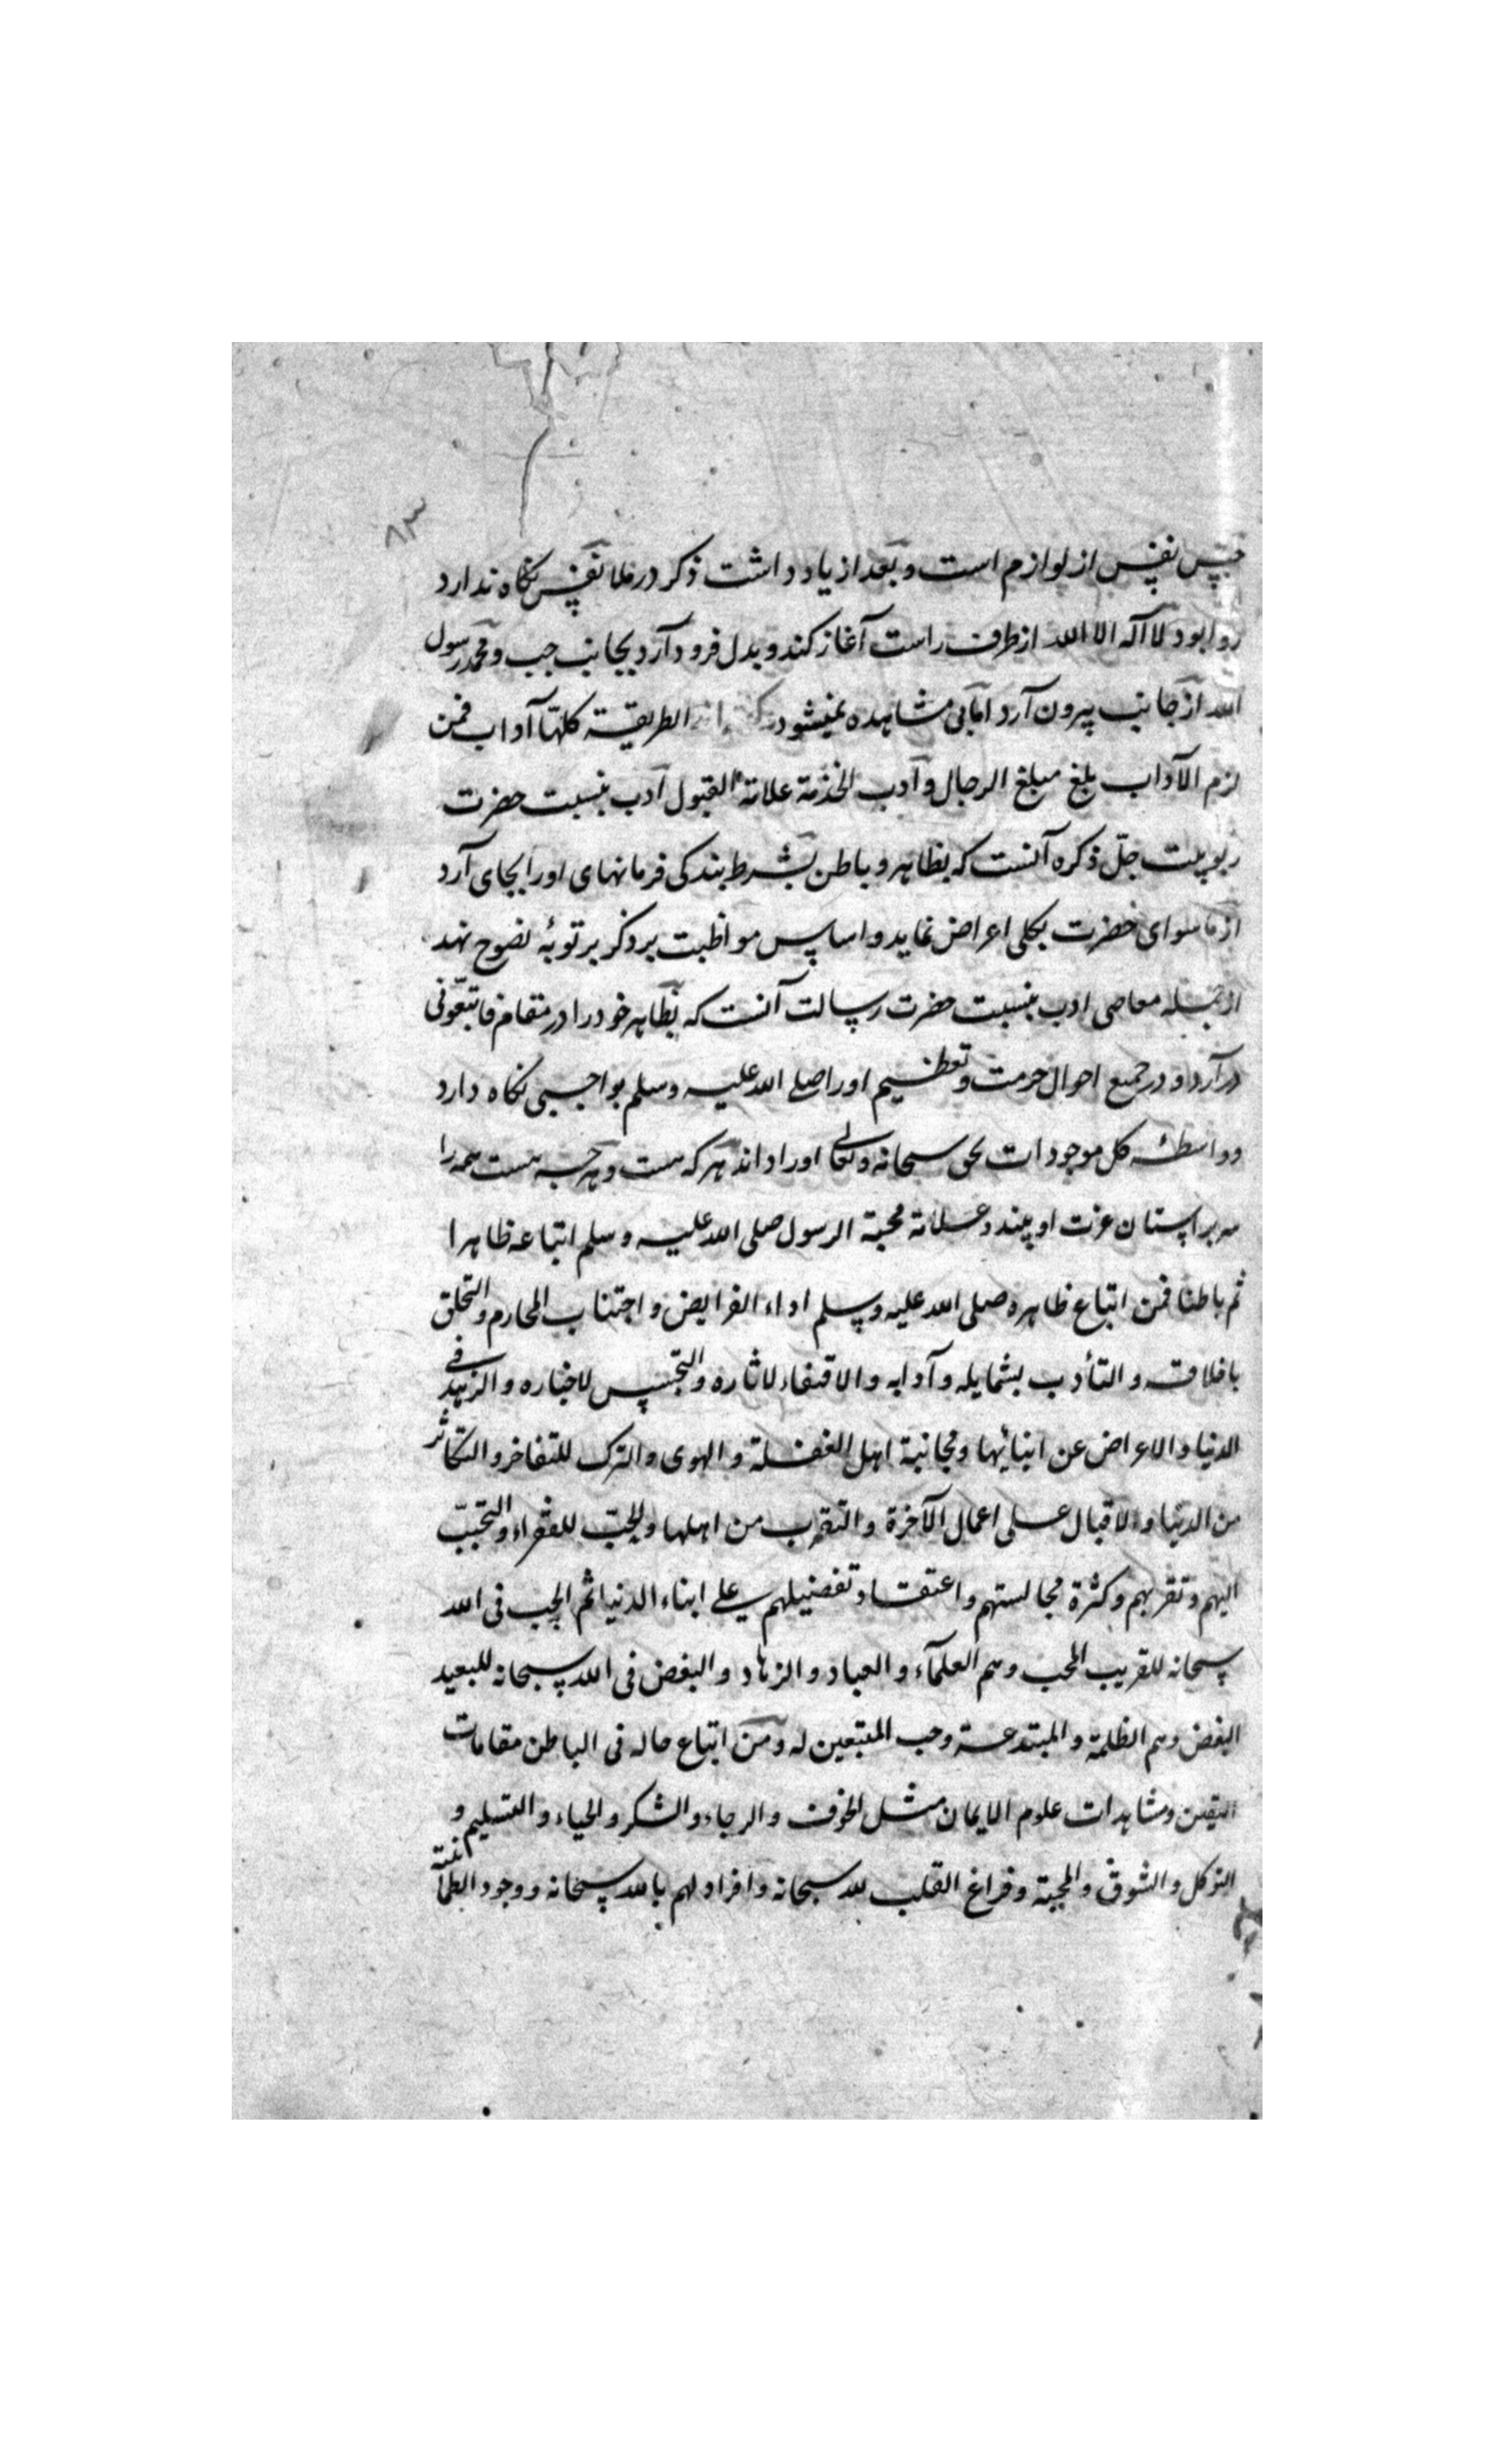 ۸۳
حبس نفس از لوازم است و بعد از یاد داشت ذکر در ملا نفس نکاه ندارد
روا بود لا اله الا الله از طرف راست آغاز کند و بدل فرود آرد بجانب چب و محمد رسول
الله از جانب بیرون آرد اما بی مشاهده نمیشود الطریقة کلها آداب فمن
لزم الآداب بلغ مبلغ الرجال و ادب الخدمة علامة القبول ادب بنسبت حضرت
ربوبیت جلّ ذکره آنست که بظاهر و باطن بشرط بندکی فرمانهای او را بجای آرد
از ماسوای حضرت بکلی اعراض نماید و اساس مواظبت بر ذکر بر توبهٔ نصوح نهد
از جمله معاصی ادب بنسبت حضرت رسالت آنست که بظاهر خود را در مقام فاتبعونی
در آرد و در جمیع احوال حرمت و تعظیم او را صلی الله علیه وسلم بواجبی نکاه دارد
و واسطهٔ کل موجودات بحق سبحانه و تعالی او را داند هر که هست و هر چه هست همه را
سر بر استان عزت او بیند و علامة محبة الرسول صلی الله علیه وسلم اتباعه ظاهرا
ثم باطنا فمن اتباع ظاهره صلی الله علیه وسلم اداء الفرایض و اجتناب المحارم و التخلق
باخلاقه و التأدب بشمایله و آدابه و الاقتفاء لاثاره و التجسس لاخباره و الزهد فی
الدنیا و الاعراض عن ابنائها و مجانبة اهل الغفلة و الهوی و الترک للتفاخر و التکاثر
من الدنیا و الاقبال علی اعمال الآخرة و التقرب من اهلها و الحبّ للفقراء و التحبّب
الیهم و تقربهم و کثرة مجالستهم و اعتقاد تفضیلهم علی ابناء الدنیا ثم الحب فی الله
سبحانه للقریب المحب و هم العلمآء و العباد و الزهاد و البغض فی الله سبحانه للبعید
البغض و هم الظلمة و المبتدعة و حب المتبعین له و من اتباع حاله فی الباطن مقامات
الیقین و مشاهدات علوم الایمان مثل الخوف و الرجاء و الشکر و الحیاء و التسلیم و
التوکل و الشوق و المحبة و فراغ القلب لله سبحانه و افراد لهم بالله سبحانه و وجود الطمأنینة